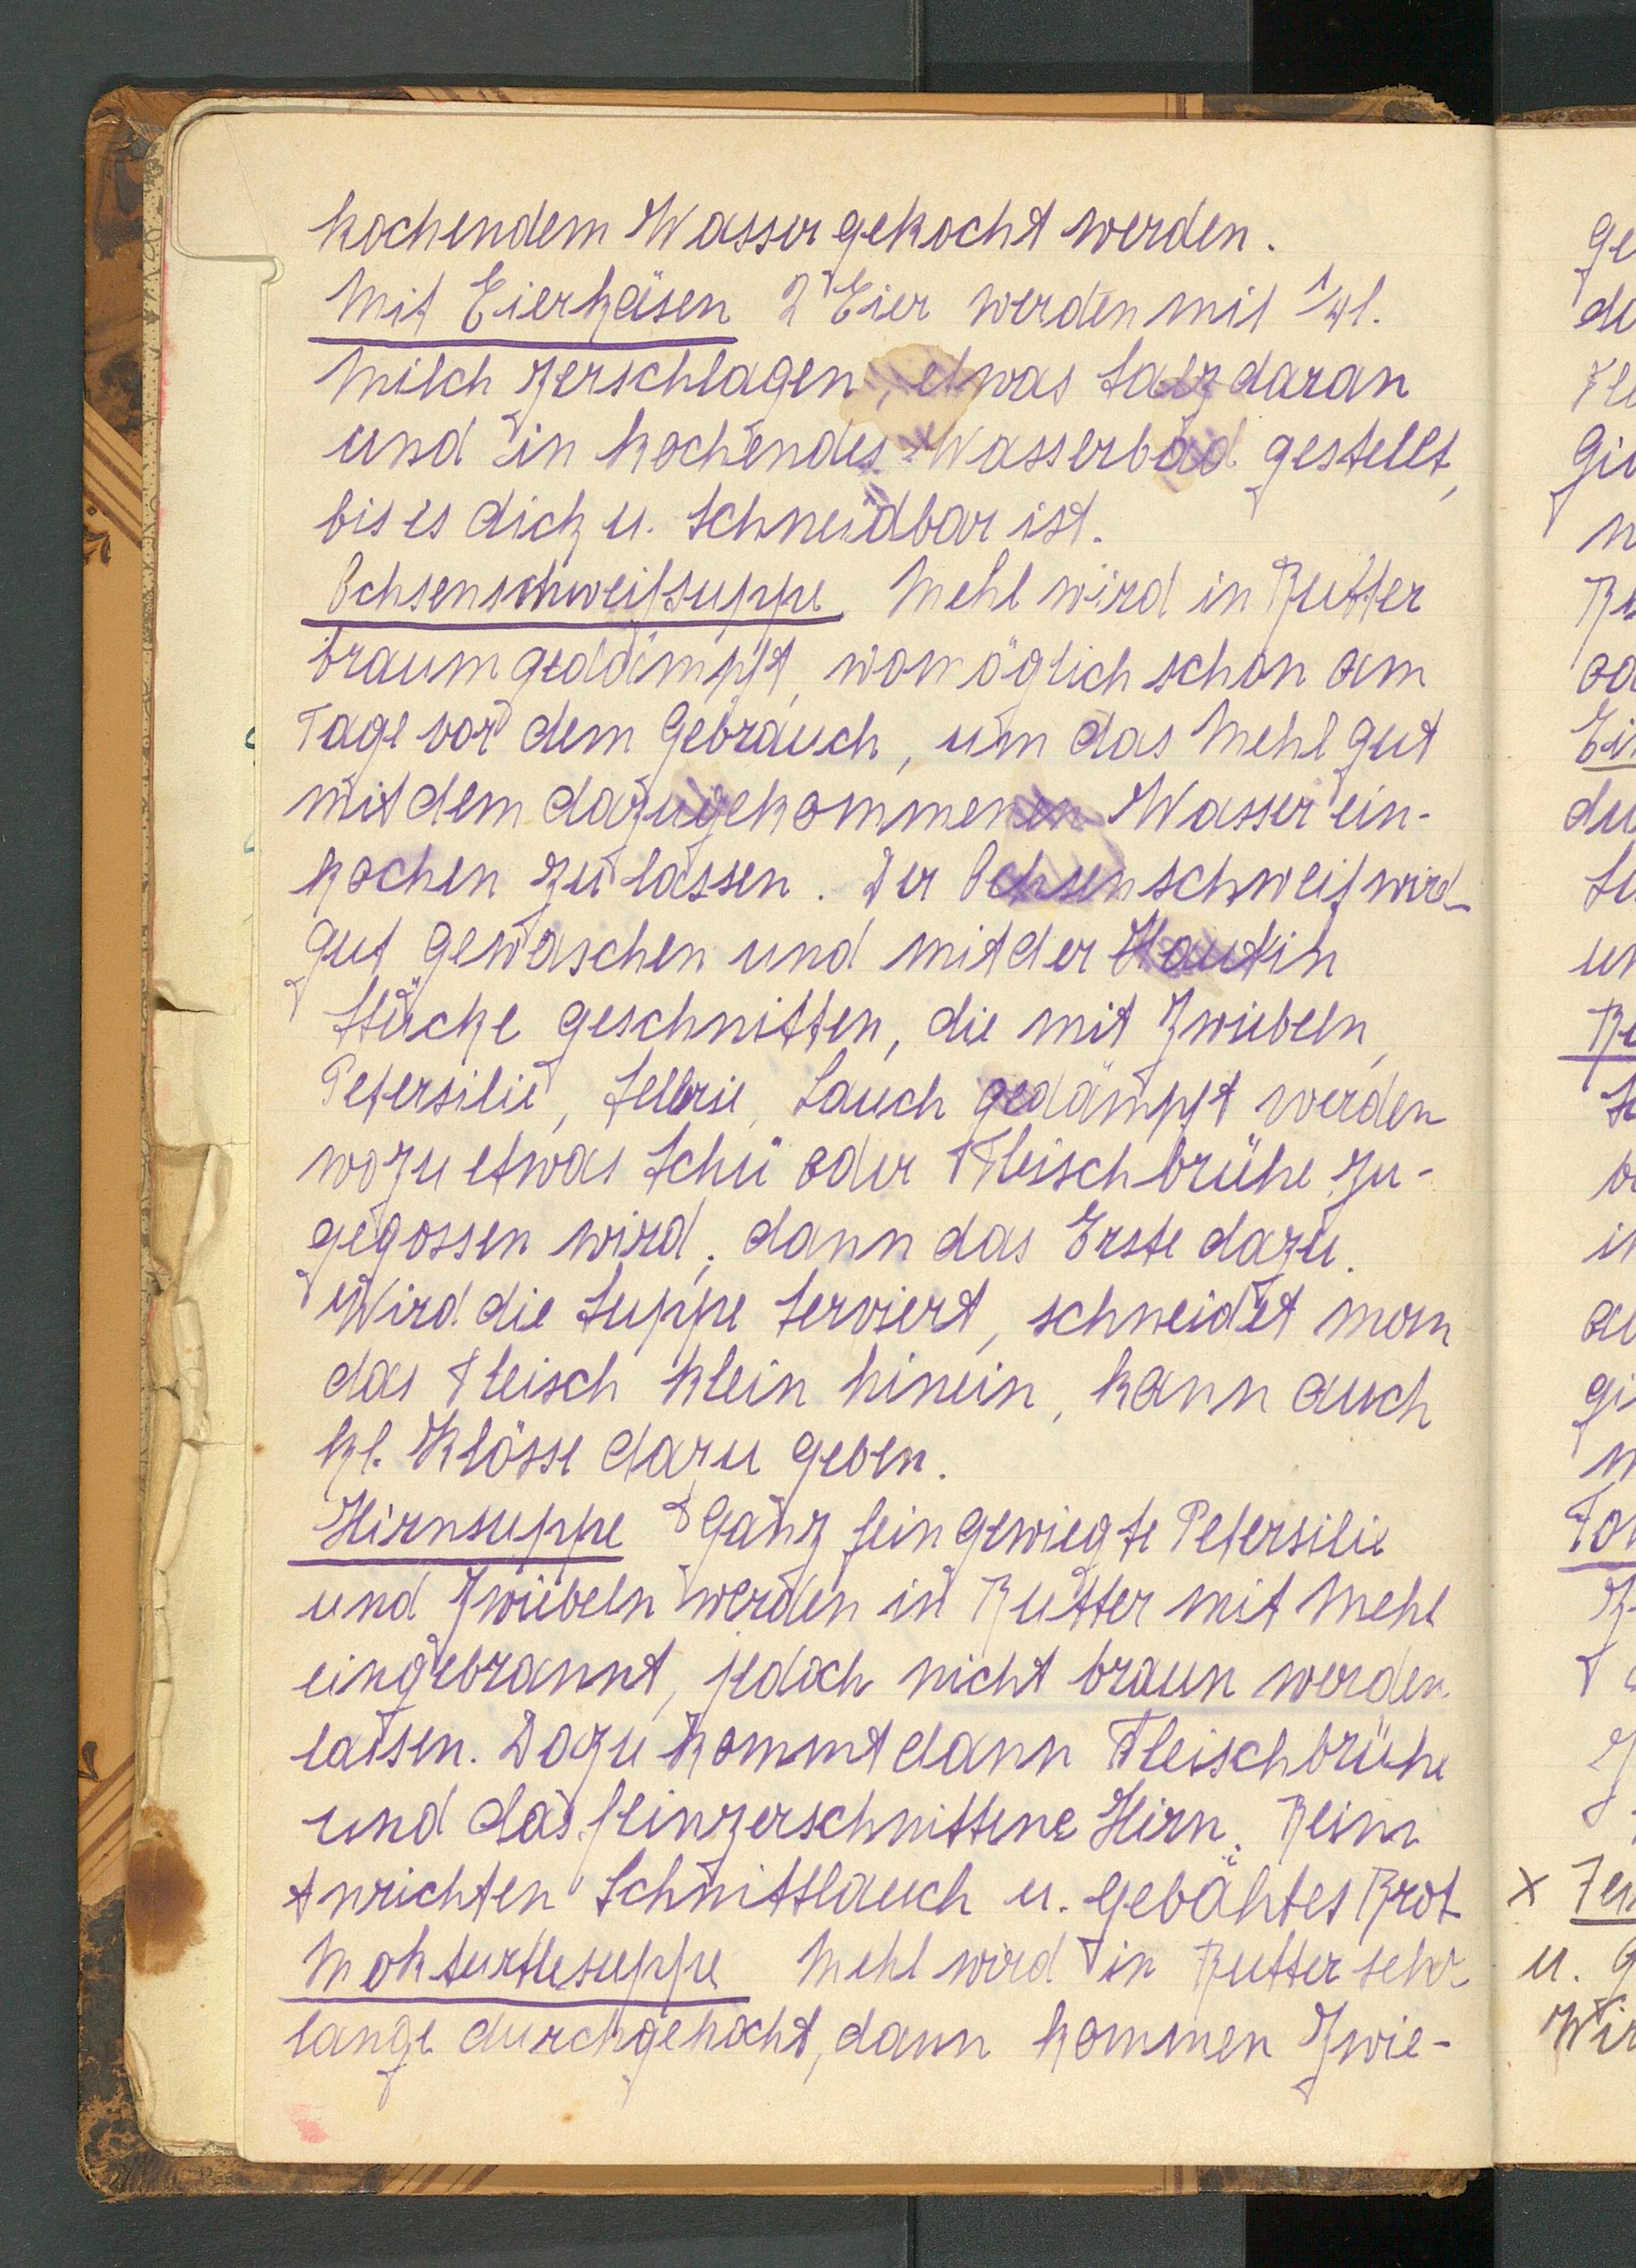 kochendem Wasser gekocht werden.
Mit Eierkäsen 2 Eier werden mit 1/4 l.
Milch zerschlagen, etwas Salz daran
und in kochendes Wasserbad gestellt,
bis es dick u. schneidbar ist.
Ochsenschweifsuppe Mehl wird in Butter
braun gedämpft, womöglich schon am
Tage vor dem Gebrauch, um das Mehl gut
mit dem dazugekommenen Wasser ein-
kochen zu lassen. Der Ochsenschweif wird
gut gewaschen und mit der Haut in
Stücke geschnitten, die mit Zwiebeln,
Petersilie, Sellerie, Lauch gedämpft werden
wozu etwas Schü oder Fleischbrühe zu-
gegossen wird, dann das Erste dazu.
Wird die Suppe serviert, schneidet man
das Fleisch klein hinein, kann auch
kl. Klösse dazu geben.
Hirnsuppe Ganz fein gewiegte Petersilie
und Zwiebeln werden in Butter mit Mehl
eingebrannt, jedoch nicht braun werden
lassen. Dazu kommt dann Fleischbrühe
und das feinzerschnittene Hirn. Beim
Anrichten Schnittlauch u. gebähtes Brot
Mokturtlesuppe Mehl wird in Butter sehr
lange durchgekocht, dann kommen Zwie-